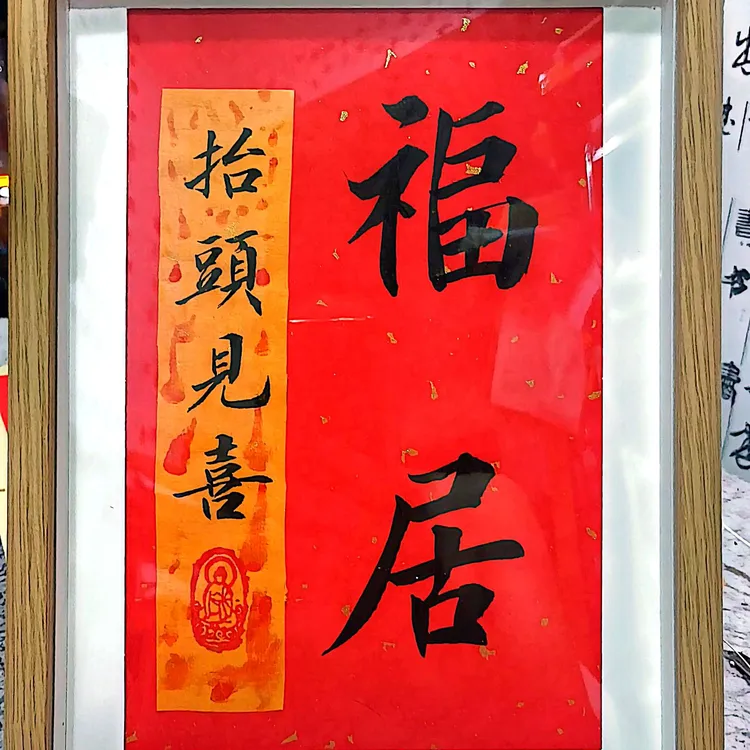 福居
抬頭見喜